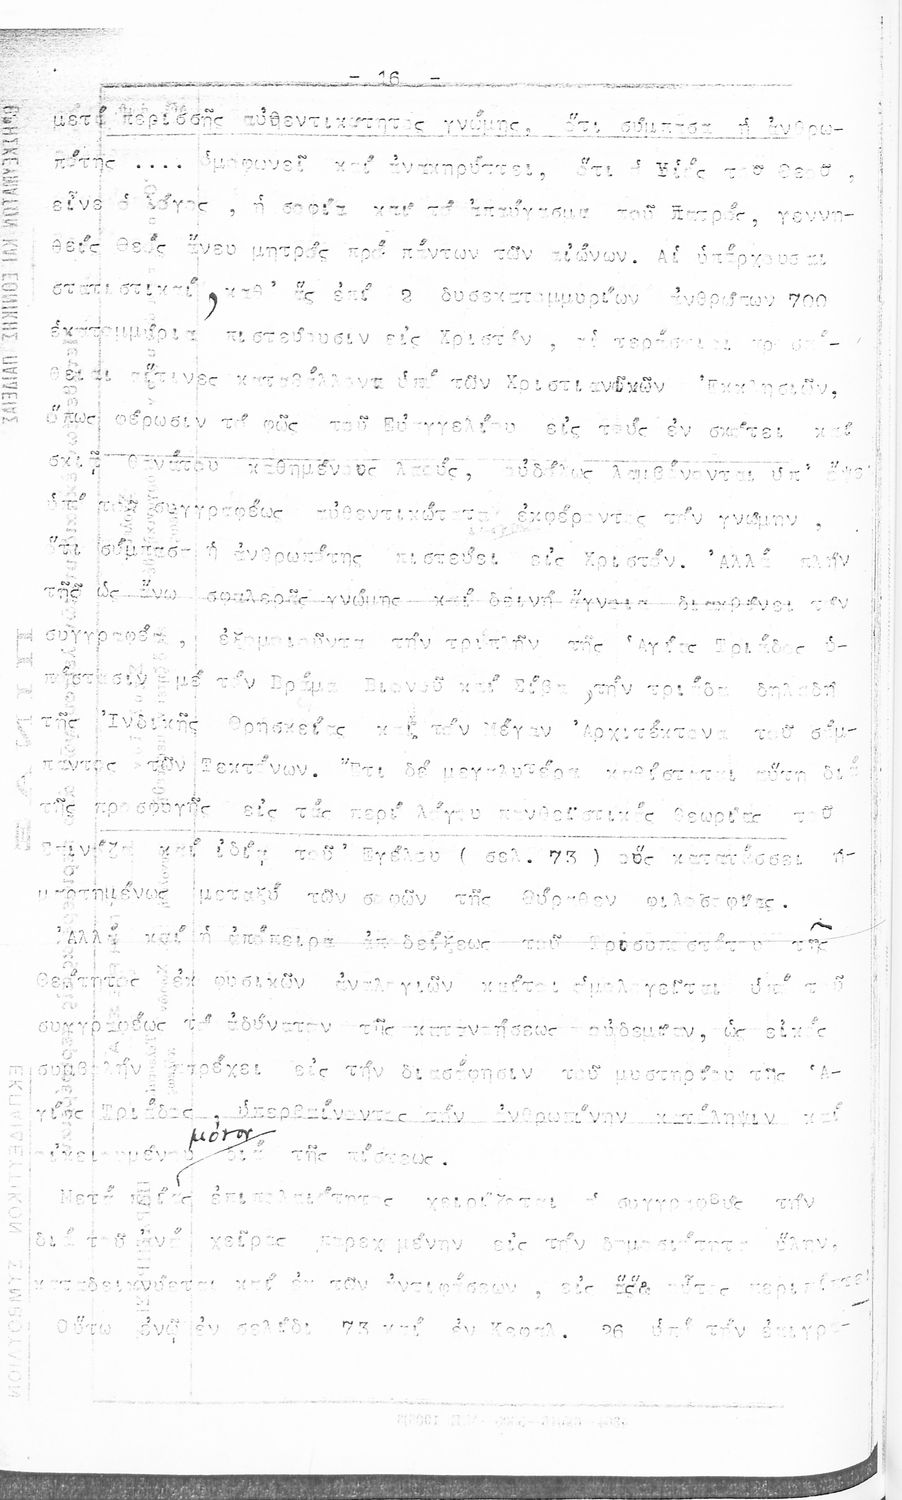 - 16 -
μετά περισσῆς αὐθεντικότητος γνώμης, ὅτι σύμπασα ἡ ἀνθρω-
πότης .... ὁμοφωνεῖ καί ἀνακηρύττει, ὅτι ὁ Υἱός τοῦ Θεοῦ ,
εἶνε ὁ λόγος , ἡ σοφία καί τό ἀπαύγασμα τοῦ Πατρός, γεννη-
θείς Θεός ἄνευ μητρός πρό πάντων τῶν αἰώνων. Αἱ ὑπάρχουσαι
στατιστικαί , καθ' ἅς ἐπί 2 δυσεκατομμυρίων ἀνθρώπων 700
ἑκατομμύρια πιστεύουσιν εἰς Χριστόν , αἱ τεράστιαι προσπά-
θειαι αἵτινες καταβάλλοντα ὑπό τῶν Χριστιανικῶν Ἐκκλησιῶν,
ὅπως φέρωσιν τό φῶς τοῦ Εὐαγγελίου εἰς τούς ἐν σκότει καί
σκιᾷ θανάτου καθημένους λαούς, οὐδόλως λαμβάνονται ὑπ' ὄψει
ὑπό τοῦ συγγραφέως αὐθεντικώτατα ἐκφέροντος τήν γνώμην ,
ὅτι σύμπασα ἡ ἀνθρωπότης πιστεύει εἰς Χριστόν. Ἀλλά πλήν
τῆς ὡς ἄνω σφαλερᾶς γνώμης καί δεινή ἄγνοια διακρίνει τόν
συγγραφέα , ἐξομοιοῦντα τήν τριπλῆν τῆς Ἁγίας Τριάδος ὑ-
πόστασιν μέ τόν Βράμα Βισνοῦ καί Σίβα , τήν τριάδα δηλαδή
τῆς Ἰνδικῆς θρησκείας καί τόν Μέγαν Ἀρχιτέκτονα τοῦ σύμ-
παντος τῶν Τεκτόνων. Ἔτι δέ μεγαλυτέρα καθίσταται αὕτη διά
τῆς προσφυγῆς εἰς τάς περί λόγου πανθεϊστικάς θεωρίας τοῦ
Σπινόζα καί ἰδίᾳ τοῦ Ἐγέλου ( σελ. 73 ) οὕς κατατάσσει ἡ-
μαρτημένως μεταξύ τῶν σοφῶν τῆς θύραθεν φιλοσοφίας.
Ἀλλά καί ἡ ἀπόπειρα ἀποδείξεως τοῦ Τρισυποστάτου τῆς
Θεότητος ἐκ φυσικῶν ἀναλογιῶν καίτοι ὁμολογεῖται ὑπό τοῦ
συγγραφέως τό ἀδύνατον τῆς κατανοήσεως οὐδεμίαν, ὡς εἰκός
συμβολήν παρέχει εἰς τήν διασάφησιν τοῦ μυστηρίου τῆς Ἁ-
γίας Τριάδος , ὑπερβαίνοντος τήν ἀνθρωπίνην κατάληψιν καί
οἰκειουμένου μόνον διά τῆς πίστεως.
Μετά ποίας ἐπιπολαιότητος χειρίζεται ὁ συγγραφεύς τήν
διά τοῦ ἀνά χεῖρας παρεχομένην εἰς τήν δημοσιότητα ὕλην,
καταδεικνύεται καί ἐκ τῶν ἀντιφάσεων , εἰς ἅς οὗτος περιπίπτει
Οὕτω ἐνῷ ἐν σελίδι 73 καί ἐν Κεφαλ. 26 ὑπό τήν ἐπιγρα-